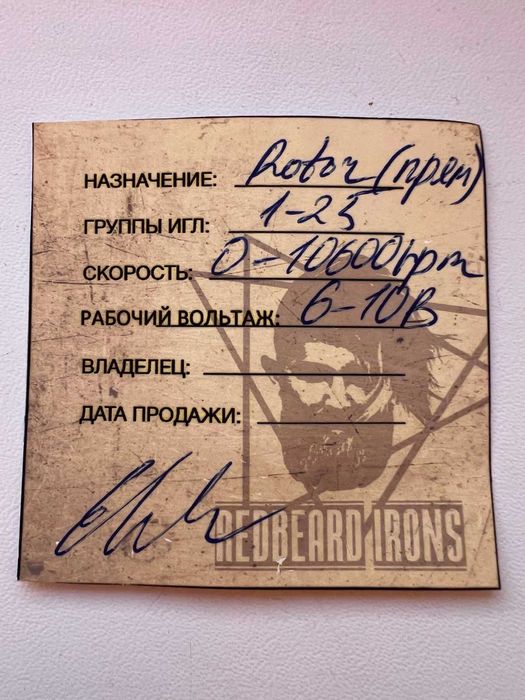 НАЗНАЧЕНИЕ: Rotor (прям)
ГРУППЫ ИГЛ: 1-25
СКОРОСТЬ: 0-10600 rpm
РАБОЧИЙ ВОЛЬТАЖ: 6-10В
ВЛАДЕЛЕЦ:
ДАТА ПРОДАЖИ:
REDBEARD IRONS